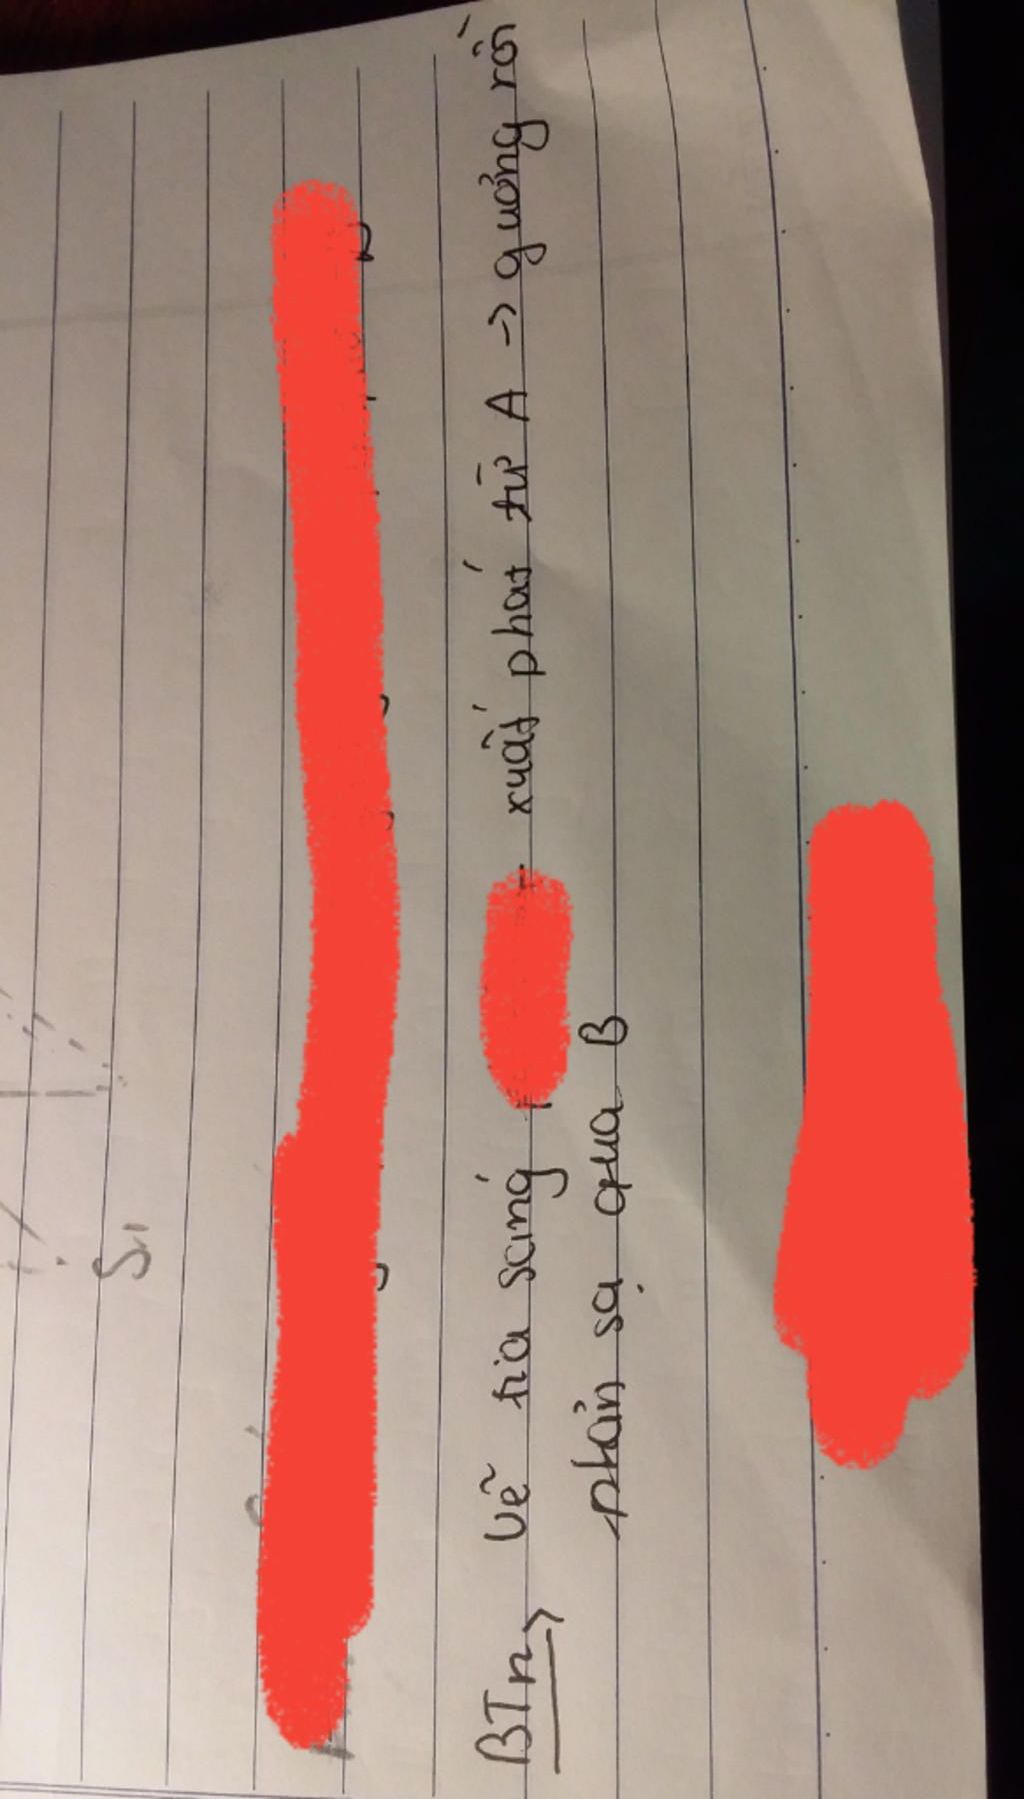 S₁
BTn Vẽ tia sáng xuất phát từ A -> gương rồi
phản sạ qua B